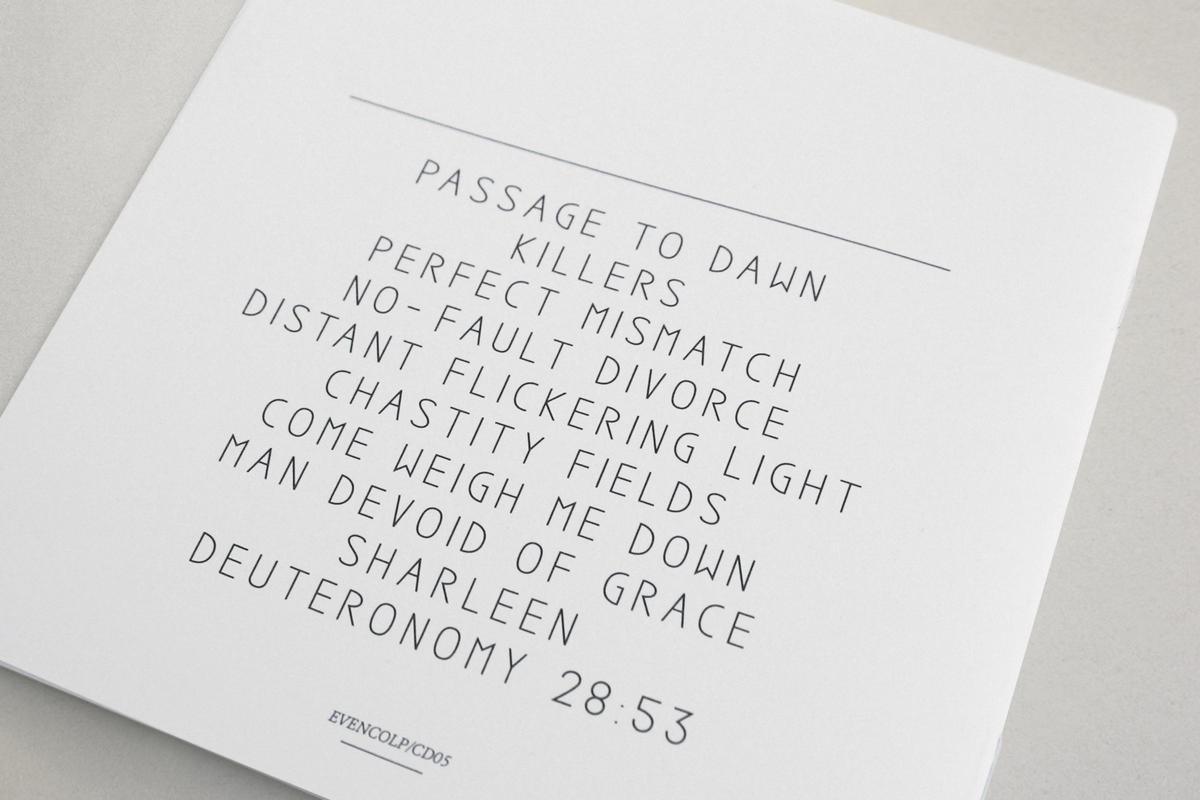 PASSAGE TO DAWN
KILLERS
PERFECT MISMATCH
NO-FAULT DIVORCE
DISTANT FLICKERING LIGHT
CHASTITY FIELDS
COME WEIGH ME DOWN
MAN DEVOID OF GRACE
SHARLEEN
DEUTERONOMY 28:53
EVENCOLP/CD05